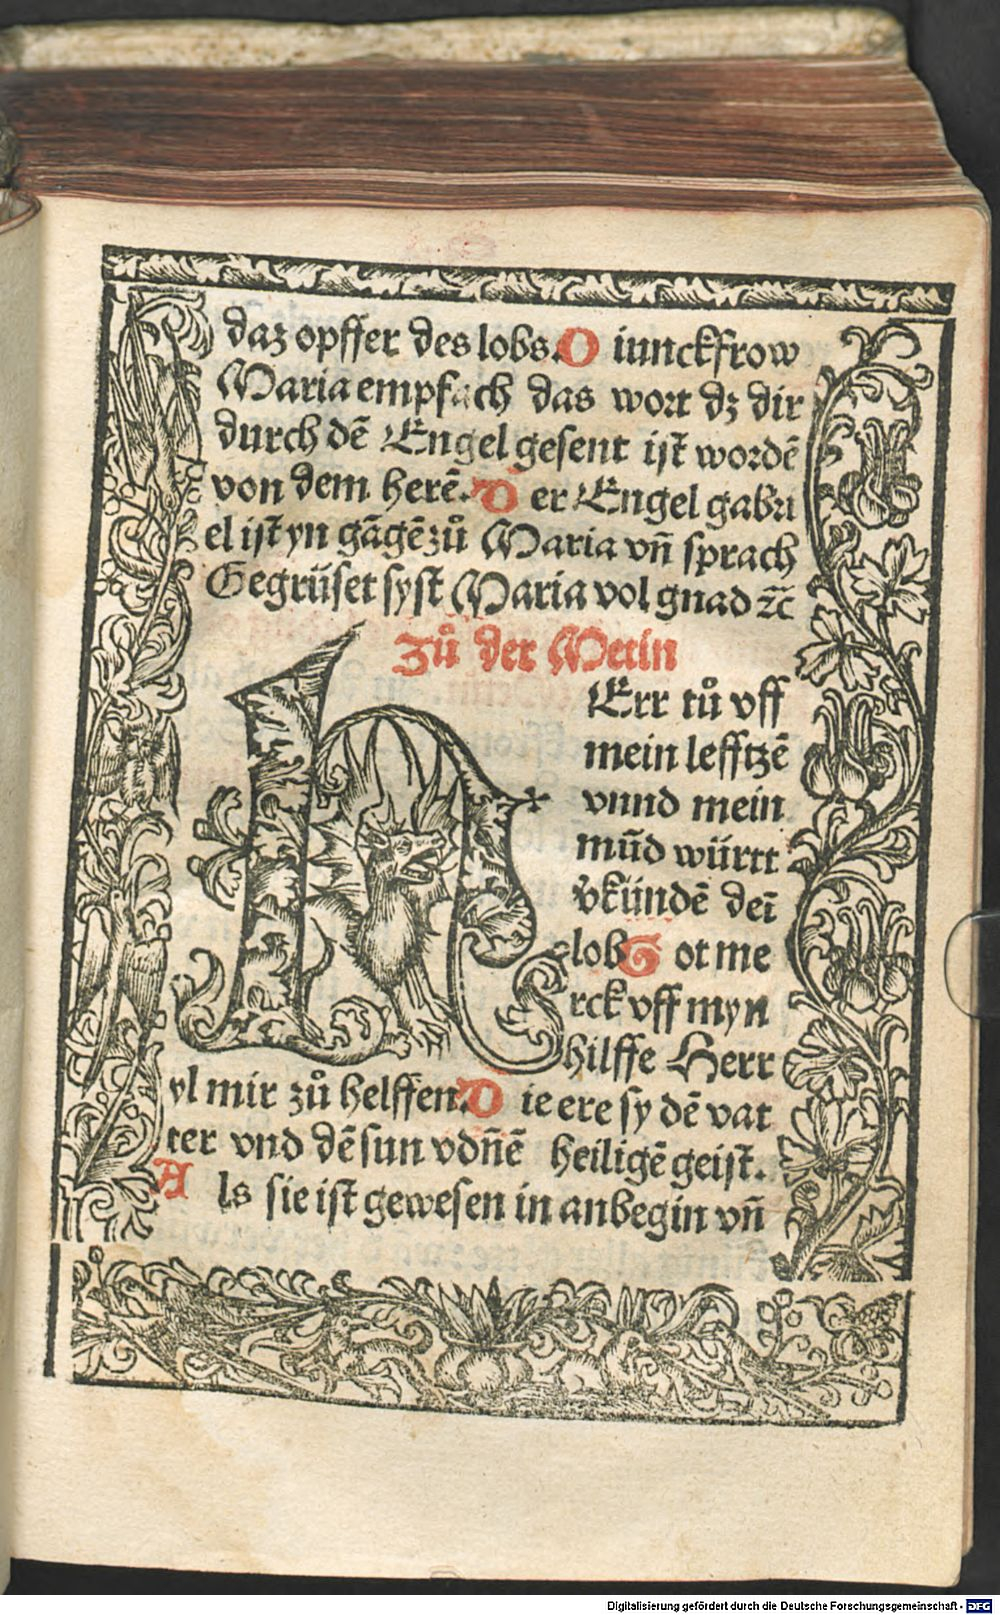 daz opffer des lobs. O iunckfrow
Maria empfach das wort dz dir
durch dē Engel gesent ist wordē
von dem herē. D er Engel gabri
el ist yn gāgē zů Maria vn̄ sprach
Gegrüset syst Maria vol gnad ꝛc̄
Zů der Metin
HErr tů vff
mein lefftzē
vnnd mein
mūd württ
v̄kündē deī
lob G ot me
rck vff myn
hilffe Herr
yl mir zů helffen. D ie ere sy dē vat
ter vnd dē sun vdn̄ē heiligē geist.
A ls sie ist gewesen in anbegin vn̄
Digitalisierung gefördert durch die Deutsche Forschungsgemeinschaft - DFG